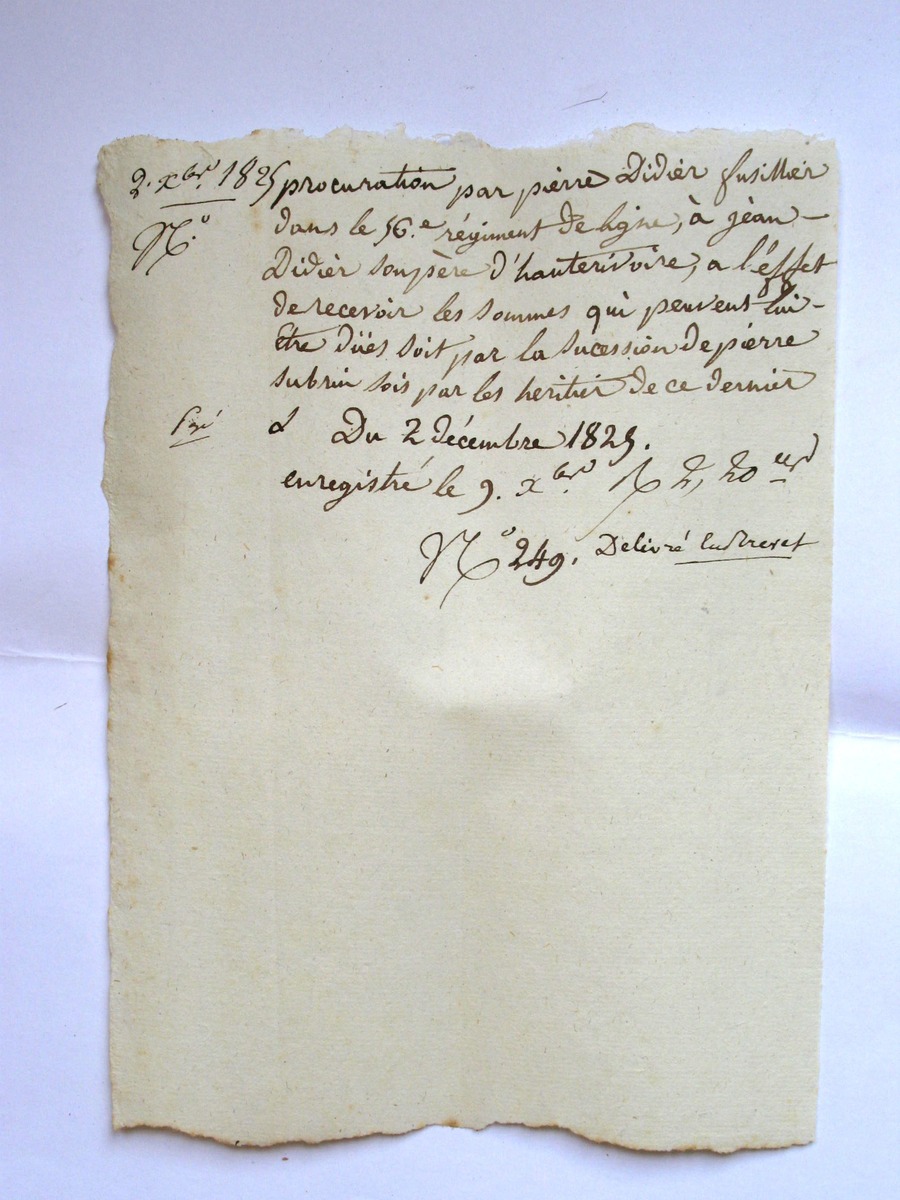 2. xbre. 1825 procuration par pièrre Didièr fusillièr
N.º dans le 56.e régiment de ligne, à jèan
Didièr son père d'hauterivoire, a l'éffet
de recevoir les sommes qui peuvent lui
Être düés soit par la sucession de pièrre
subrin sois par les heritièr de ce dernièr
Du 2 décembre 1825.
enregistré le 9. xbre. R 2, 20
Nº 249. Delivré En Brevet